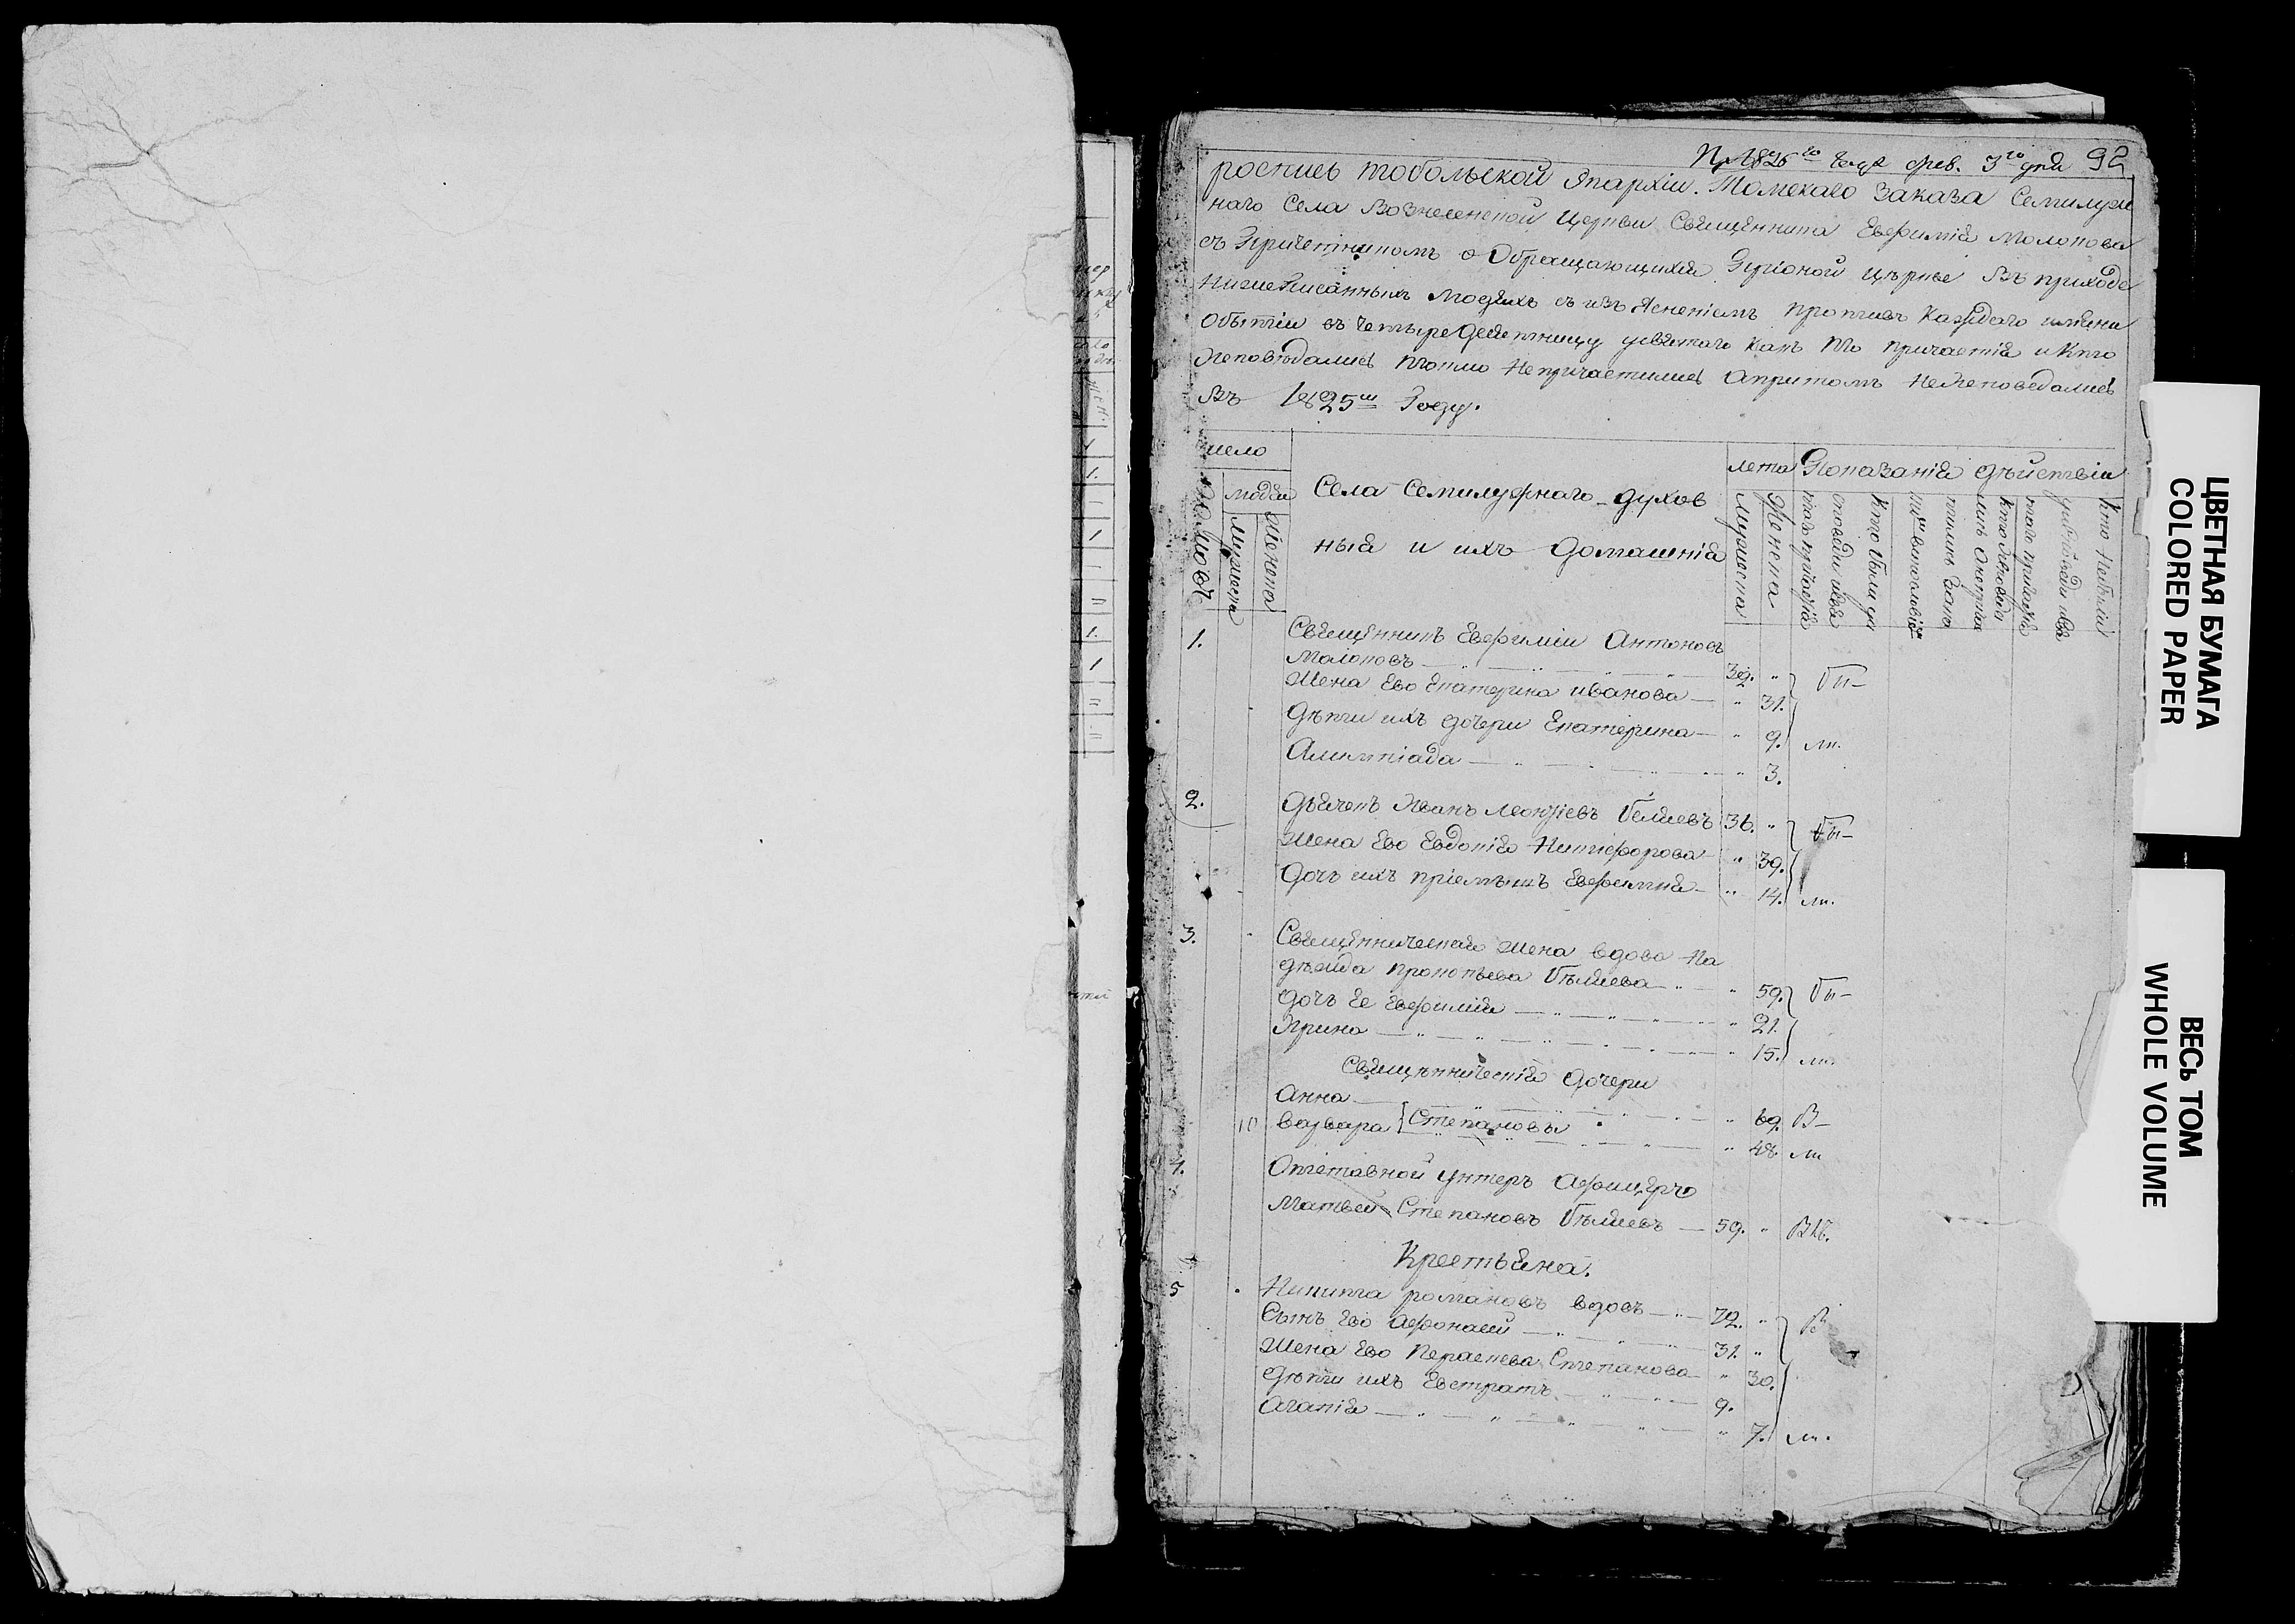 П. 1826го года фев. 3го дня 92
роспись тобольской Эпархіи. Томскаго Заказа Семилуж
наго Села Вознесенской Церкви Священника Евфимія Молокова
съ Причетникомъ о Обращающихся При оной церкве Въ приходе
Нижеписанныхъ людехъ съ изъ Яснениемъ противъ Каждаго имени
о бытіи въ четыредесятницу у святаго Какъ То причастія и Кто
исповѣдались токмо Не причастились а притомъ Не исповедались
Въ 1825м Году.
число
домовъ
людей
мужеска
женска
Села Семилужнаго духов
ныя и ихъ домашнія
лета
мужеска
женска
Показаніе дѣйствіи
кто небыли
1. Священникъ Евфиміи Антоновъ
Молоковъ 39. Бы
Жена Ево Екатерина иванова 31.
Дѣти ихъ дочери Екатерина 9. ли.
Алимпіада 3.
2. Дьячекъ Иванъ Леонтіевъ Беляевъ 36. Бы
Жена Ево Евдокія Никифорова 39.
Дочь ихъ пріемышъ Евфимия 14. ли.
3. Священническая жена вдова На
дежда прокопьева Бѣляева 59. Бы
Дочь Ее Евфимія 21.
Ирина 15. ли.
Священническія дочери
Анна 69. В
10 Варвара Степановы 48. ли
4. Отставной унтеръ Афицеръ
Матвей Степановъ Бѣляевъ 59.
Крестьяна.
5 Никита романовъ вдовъ 72. В
Сынъ Ево Афонасей 31.
Жена Ево Параскева Степанова 30.
Дѣти ихъ Евстратъ 9.
Агапія 7. ли.
ЦВЕТНАЯ БУМАГА
COLORED PAPER
ВЕСЬ ТОМ
WHOLE VOLUME